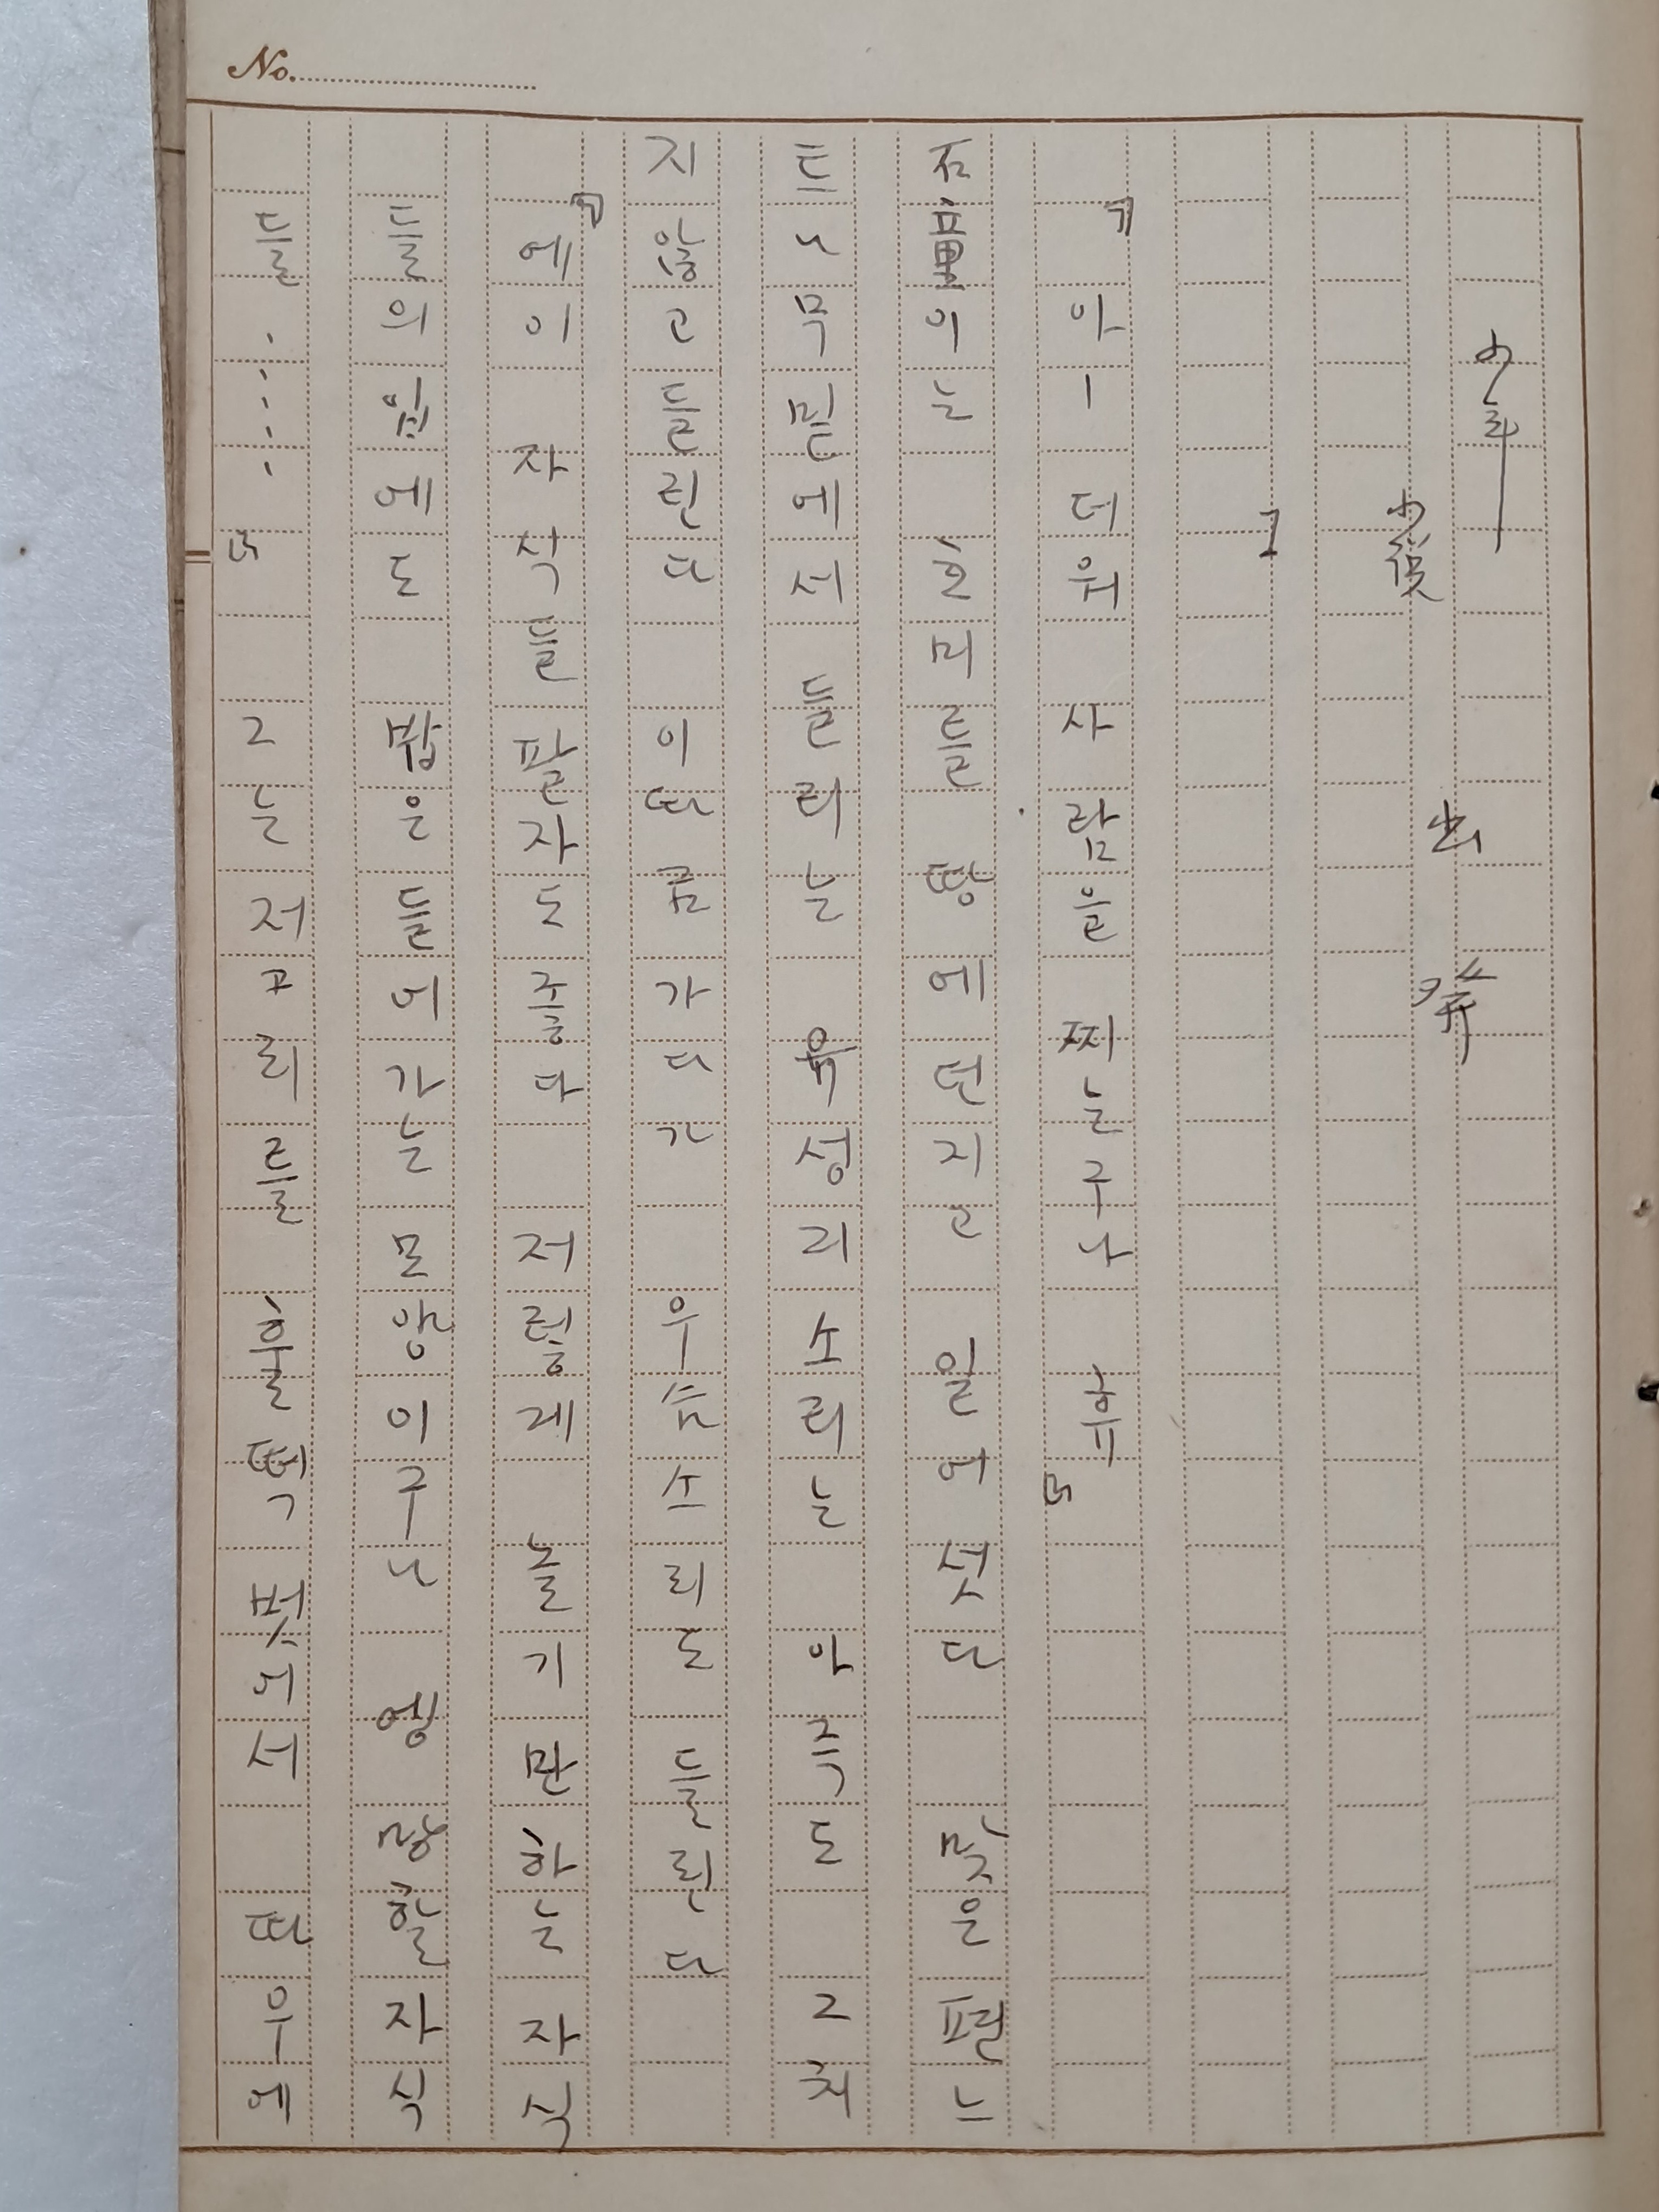 少年
小說
出 發
1
『아ー더워 사람을 찌는구나 휴』
石이는 호미를 땅에 던지고 일어섯다 맞은편 느
트나무 믿에서 들리는 유성리소리는 아즉도 그치
지 않고 들린다 이따금가다가 우슴소리도 들린다
『에이 자식들 팔자도 좋다 저렇게 놀기만하는 자식
들의 입에도 밥은 들어가는 모양이구나 엥 망할 자식
들·····』 그는 저고리를 훌떡 벗어서 따우에